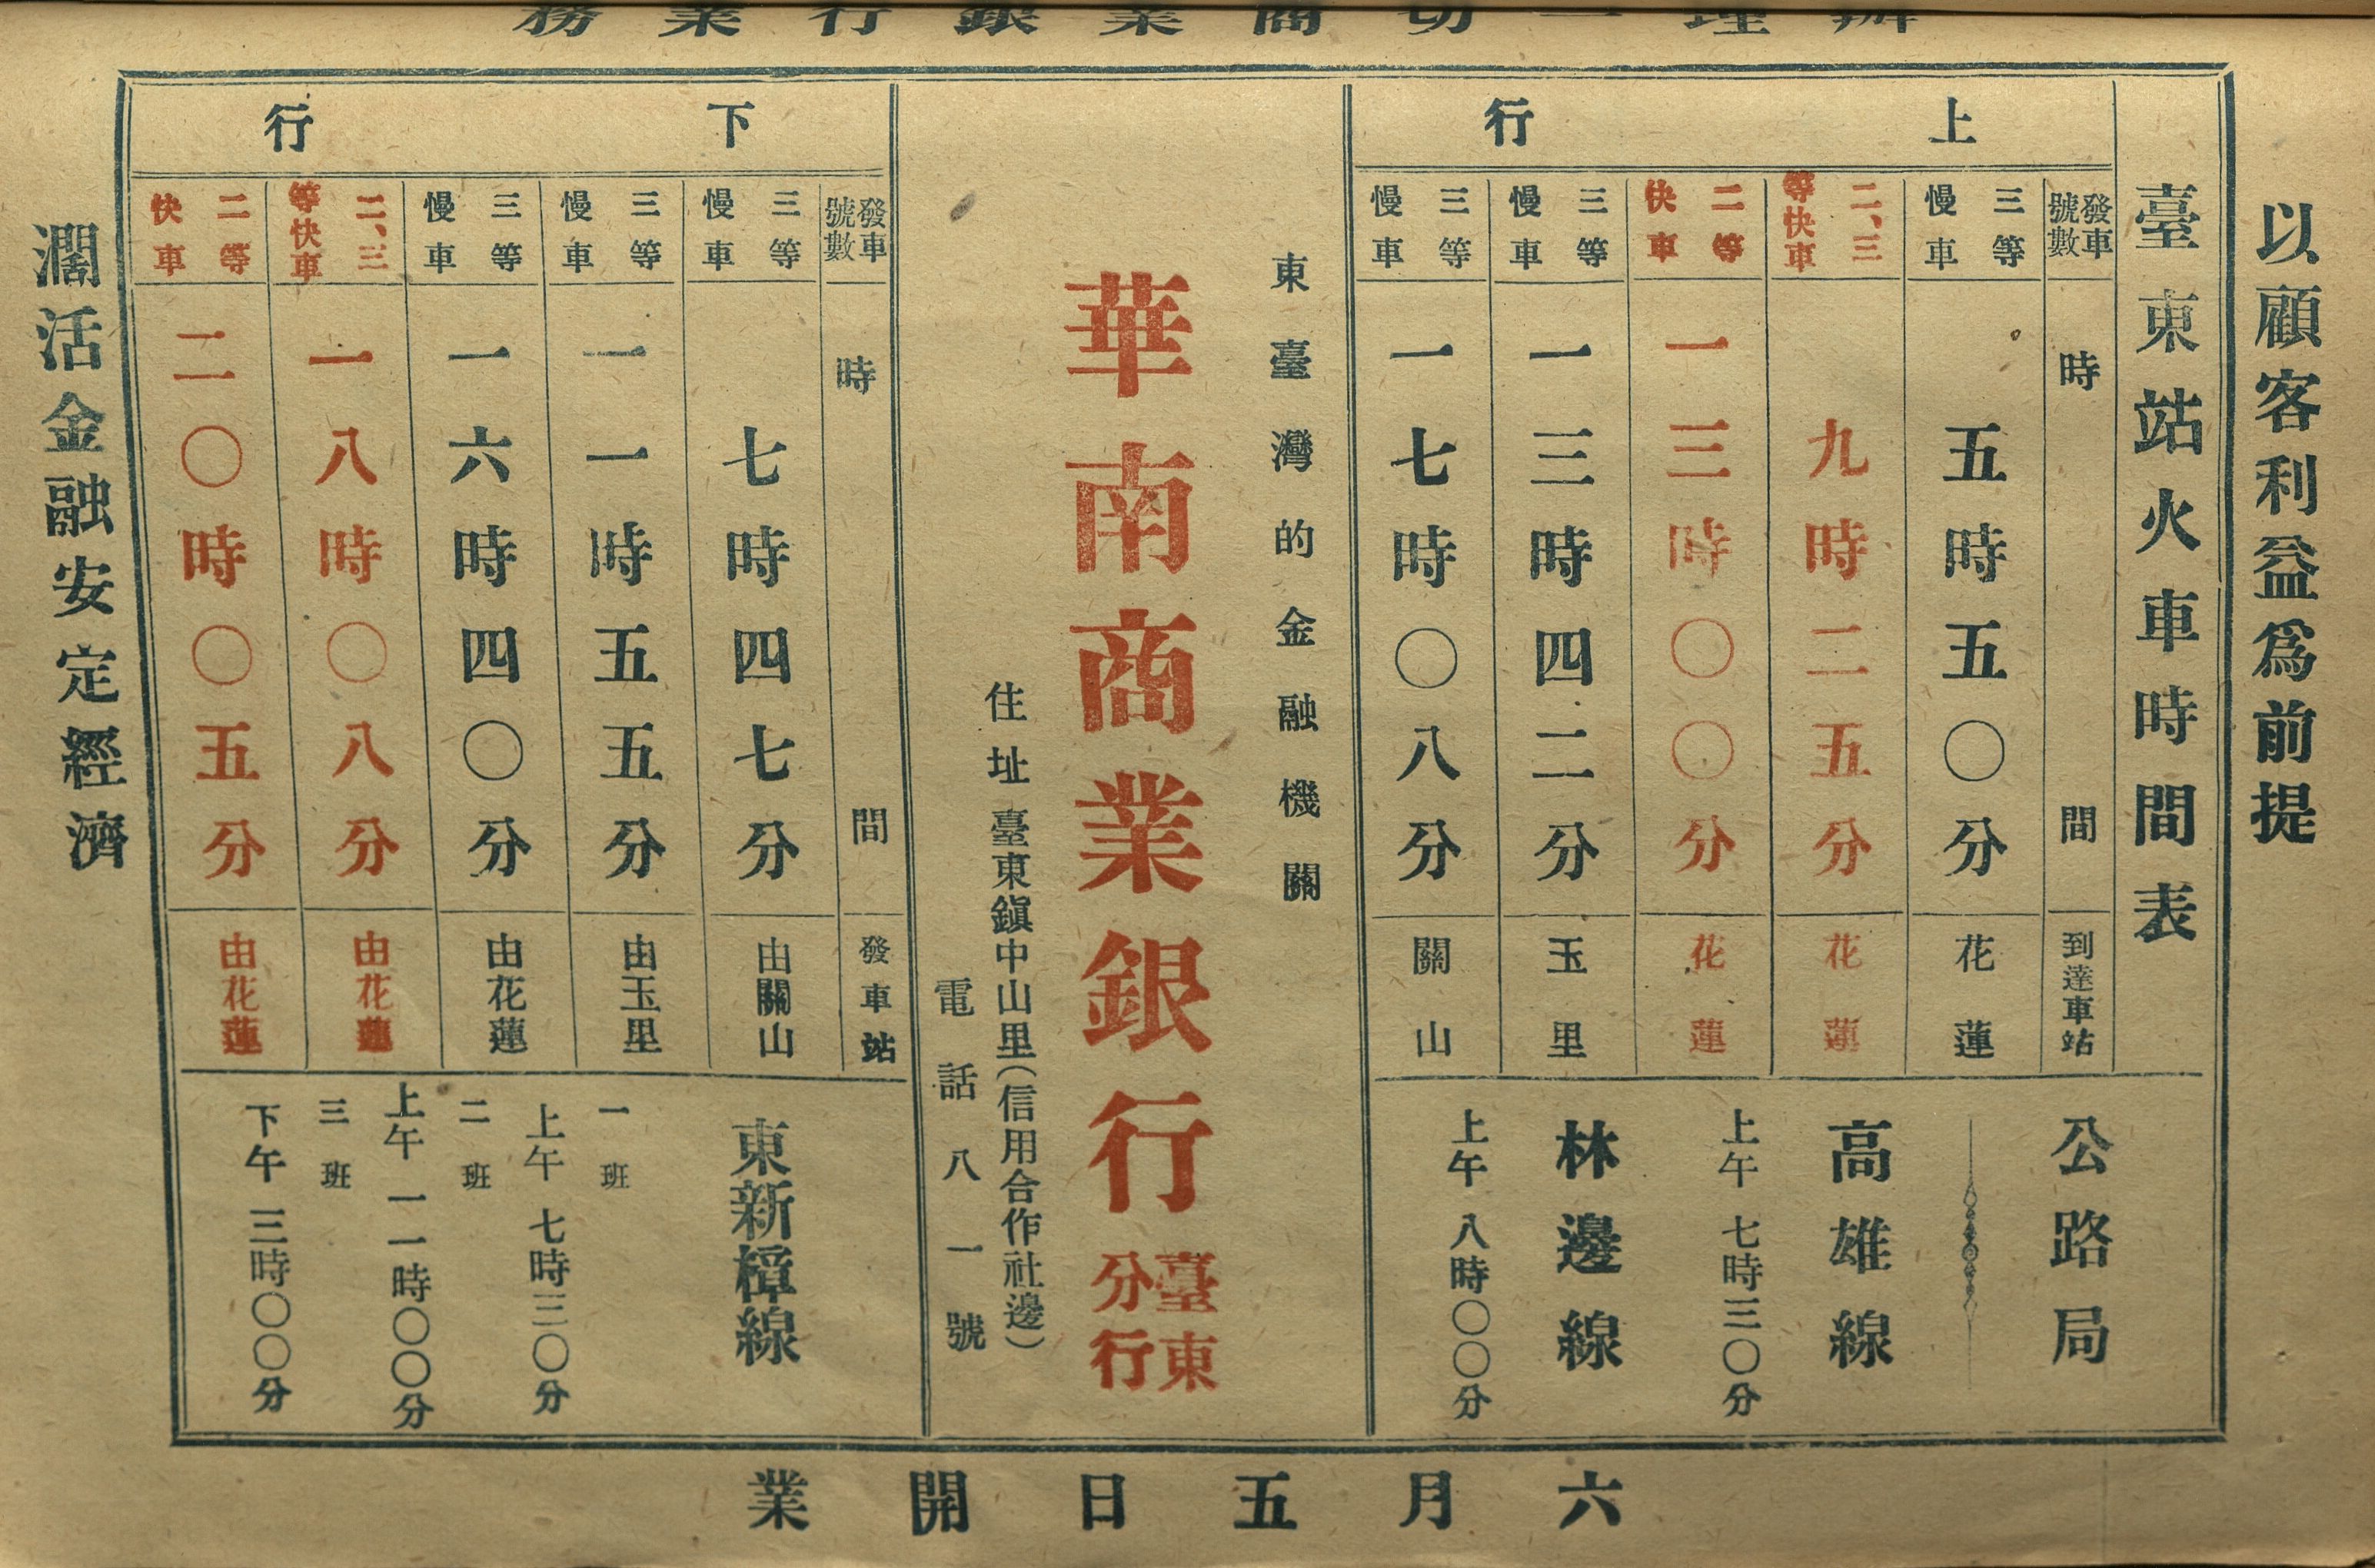 辦理一切商業銀行業務
以顧客利益爲前提
臺東站火車時間表
上行
發車號數 時間 到達車站
三等慢車 五時五〇分 花蓮
二、三等快車 九時二五分 花蓮
二等快車 一三時〇〇分 花蓮
三等慢車 一三時四二分 玉里
三等慢車 一七時〇八分 關山
公路局
高雄線
上午七時三〇分
林邊線
上午八時〇〇分
東臺灣的金融機關
華南商業銀行臺東分行
住址臺東鎭中山里(信用合作社邊)
電話八一號
下行
發車號數 時間 發車站
三等慢車 七時四七分 由關山
三等慢車 一一時五五分 由玉里
三等慢車 一六時四〇分 由花蓮
二、三等快車 一八時〇八分 由花蓮
二等快車 二〇時〇五分 由花蓮
東新樟線
一班
上午七時三〇分
二班
上午一一時〇〇分
三班
下午三時〇〇分
濶活金融安定經濟
六月五日開業